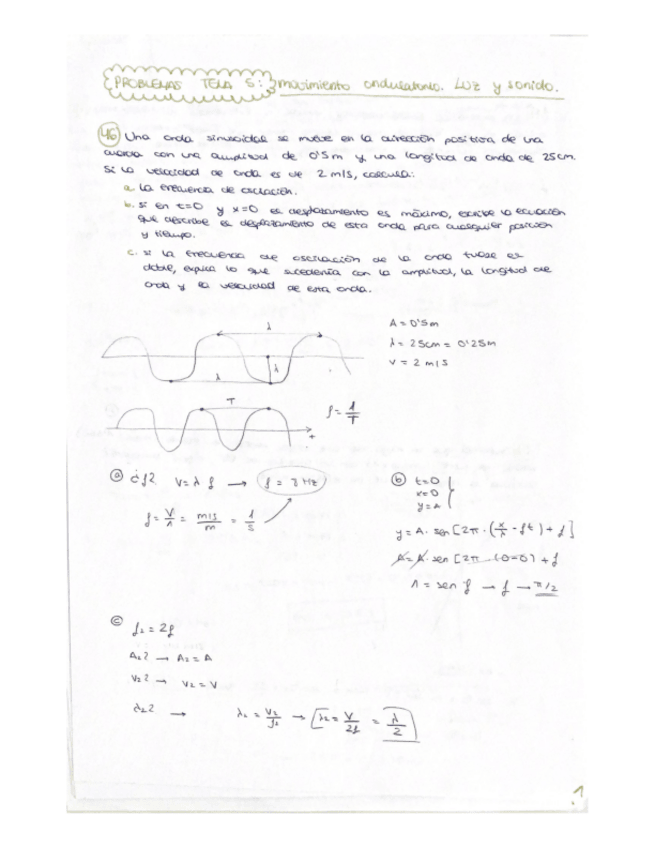 PROBLEMAS TEMA 5: movimiento ondulatorio. Luz y sonido.
46 Una onda sinusoidal se mueve en la dirección positiva de una
cuerda con una amplitud de 0'5m y una longitud de onda de 25cm.
Si la velocidad de onda es de 2 m/s, calcula:
a. La frecuencia de oscilación.
b. si en t=0 y x=0 el desplazamiento es máximo, escribe la ecuación
que describe el desplazamiento de esta onda para cualquier posición
y tiempo.
c. si la frecuencia de oscilación de la onda fuese el
doble, explica lo que sucedería con la amplitud, la longitud de
onda y la velocidad de esta onda.
λ
A = 0'5m
λ = 25cm = 0'25m
V = 2 m/s
λ
λ
T
f = 1/T
t
a ¿f? V = λ f → f = 8 Hz
f = V/λ = m/s / m = 1/s
b t=0
x=0
y=A
y = A · sen [2π · (x/λ - ft) + f]
A = A · sen [2π · (0-0) + f
1 = sen f → f → π/2
c f₂ = 2f
A₂? → A₂ = A
V₂? → V₂ = V
λ₂? → λ₂ = V₂/f₂ → λ₂ = V/2f = λ/2
1